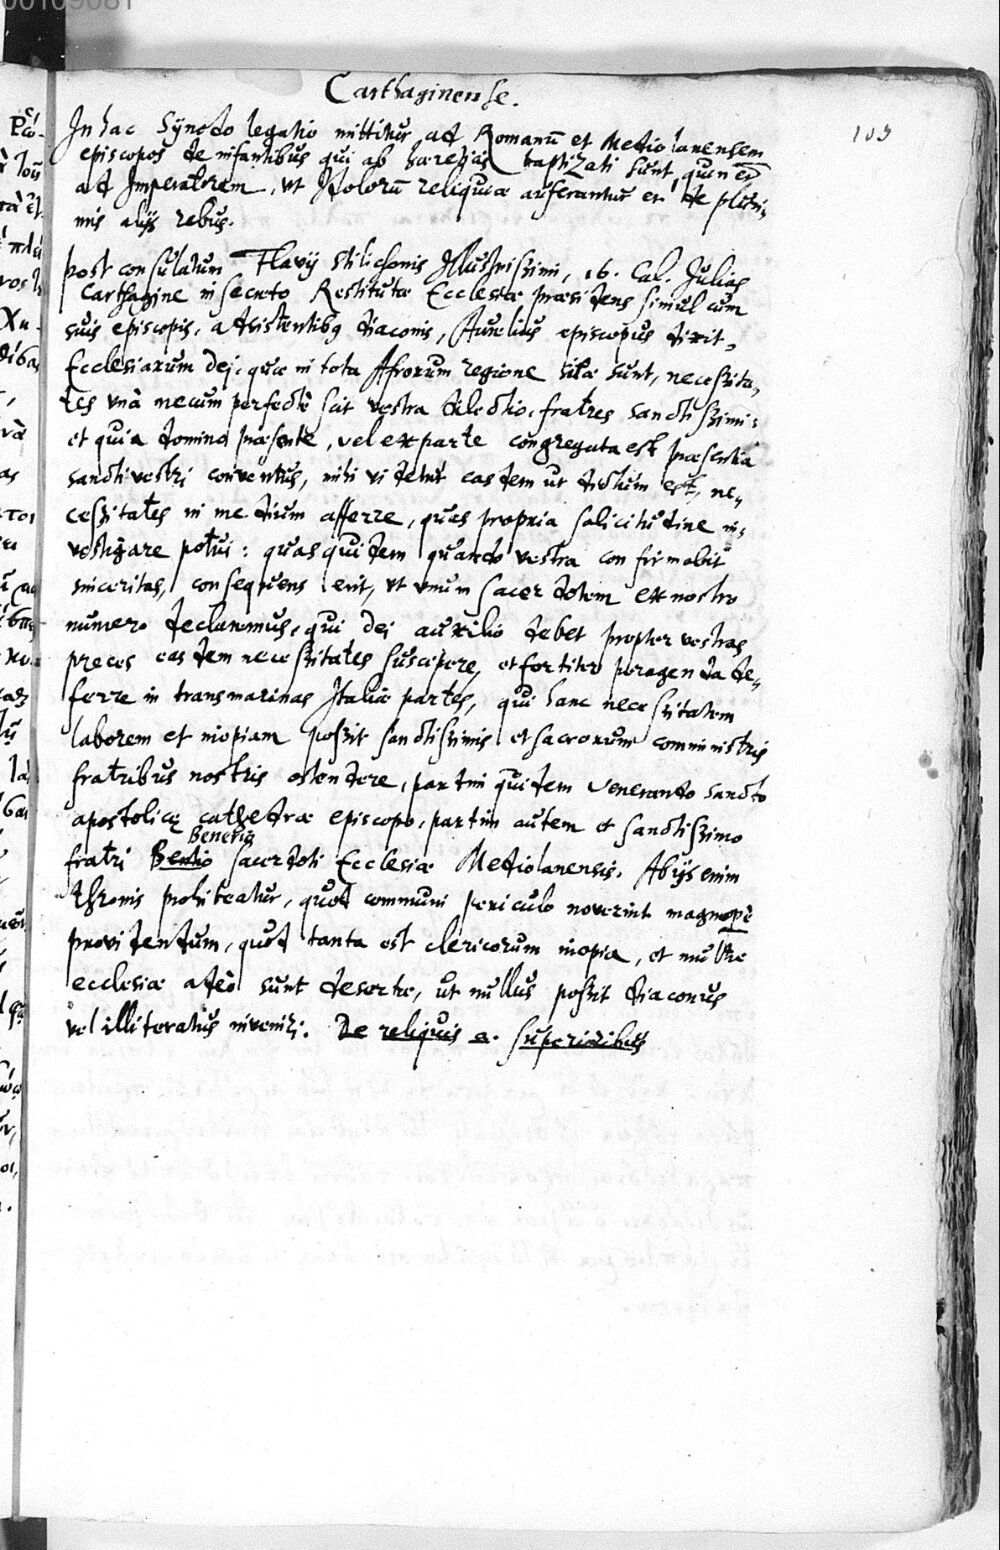 00109081
Carthaginense.
103
In hac Synodo legatio mittitur ad Romanū et Mediolanensem
episcopos de infantibus qui ab haeretiis baptizati sunt,
ad Imperatorem, ut Idolorū reliquiae auferantur et de pluri-
mis alijs rebus.
post consulatum Flavij Stiliconis Illustrissimi, 16. Cal. Julias
Carthagine in secreto Restitutae Ecclesiae praesidens simul cum
suis episcopis, adsistentibq diaconis, Aurelius episcopus dixit,
Ecclesiarum dej, quae in tota Afrorum regione sitae sunt, necessita-
tes unà mecum perfectè scit vestra dilectio, fratres sanctissimi:
et quia domino praesente, vel ex parte congregata est praesentia
sancti vestri conventus, mihi videtur easdem ut dictum est, ne-
cessitates in medium afferre, quas propria solicitudine in-
vestigare potui: quas quidem quando vestra confirmabit
sinceritas, consequens erit, ut unum sacerdotem ex nostro
numero declaremus, qui dej auxilio debet propter vestras
preces easdem necessitates suscipere, et fortiter peragenda de-
ferre in transmarinas Italiae partes, qui hanc necessitatem
laborem et inopiam possit sanctissimis et sacrorum comministris
fratribus nostris ostendere, partim quidem venerando sancto
apostolicę cathedrae episcopo, partim autem et sanctissimo
Benerio
fratri Bentio sacerdoti Ecclesiae Mediolanensis. Ab ijs enim
thronis prohibeatur, quod communi periculo noverint magnoperè
providendum, quod tanta est clericorum inopia, et multae
ecclesiae adeò sunt desertae, ut nullus possit diaconus
vel illiteratus inveniri. De reliquis a. superioribus